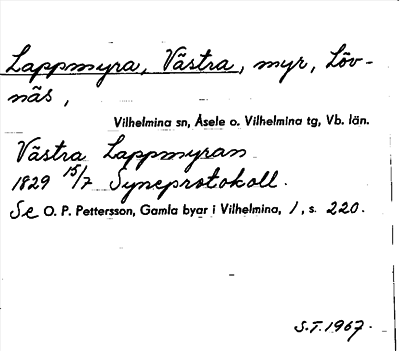 Lappmyra, Västra, myr, Löv-
näs,
Vilhelmina sn, Åsele o. Vilhelmina tg, Vb. län.
Västra Lappmyran
1829 15/7 Syneprotokoll.
Se O. P. Pettersson, Gamla byar i Vilhelmina, 1, s. 220.
S.T. 1967.